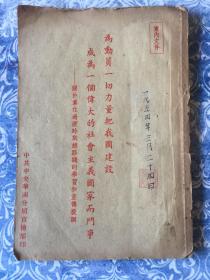 党内文件
为動員一切力量把我國建設
成為一個偉大的社會主義國家而鬥爭
——關於黨在過渡時期總路綫的學習和宣傳提綱
中共中央華南分局宣傳部印
一九五四年三月二十四日